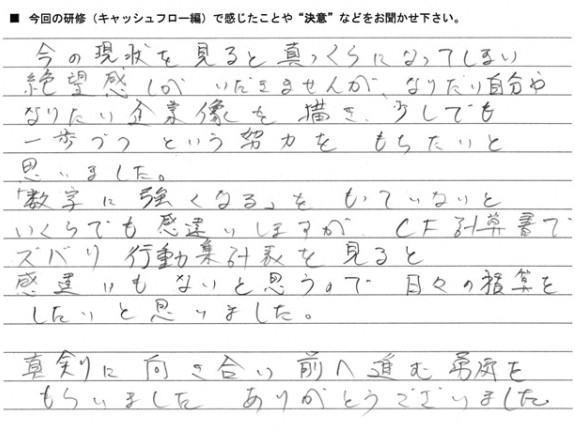 ■ 今回の研修（キャッシュフロー編）で感じたことや“決意”などをお聞かせ下さい。
今の現状を見ると真っくらになってしまい
絶望感しかいだきませんが、なりたい自分や
なりたい企業像を描き、少しでも
一歩づつという努力をもちたいと
思いました。
「数字に強くなる」をもていないと
いくらでも感違いしますが CF計算書で
ズバリ 行動集計表を見ると
感違いもないと思うので 日々の積算を
したいと思いました。
真剣に向き合い前へ進む勇気を
もらいました ありがとうございました